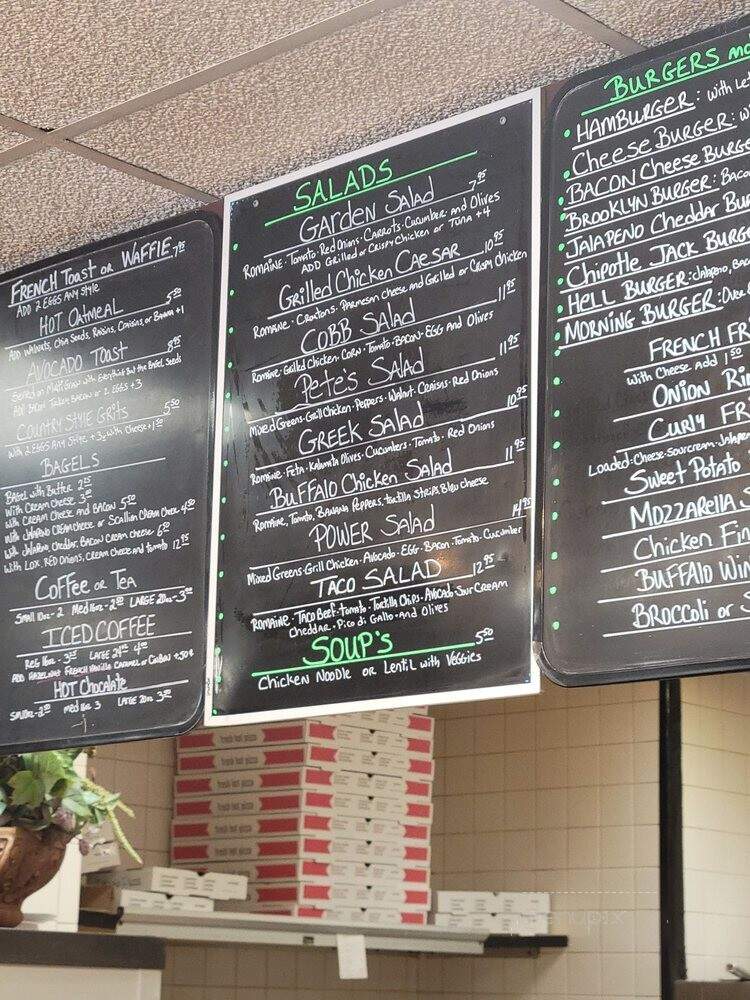 FRENCH Toast or WAFFLE 7.95
ADD 2 EGGS ANY Style
HOT Oatmeal 5.50
ADD Walnuts, Chia Seeds, Raisins, Craisins, or Banana +1
AVOCADO Toast 8.95
Served on Multi Grain with Everything But the Bagel Seeds
ADD Bacon Turkey Bacon or 2 EGGS +3
COUNTRY STYLE GRITS 5.50
With 2 EGGS Any Style +3 with Cheese +1.50
BAGELS
BAGEL with Butter 2.25
With CREAM Cheese 3.50
With CREAM Cheese AND BACON 5.50
With Jalapeno CREAM Cheese or Scallion CREAM Cheese 4.50
With Jalapeno, Cheddar, BACON CREAM Cheese 6.50
With LOX RED ONIONS, CREAM Cheese and tomato 12.95
COFFEE OR TEA
Small 10oz - 2 Med 16oz - 2.50 LARGE 20oz - 3.00
ICED COFFEE
REG 16oz - 3.25 LARGE 24oz 4.00
ADD HAZELNUT FRENCH VANILLA CARAMEL or +.50¢
HOT Chocolate
Sm 10oz - 2.50 med 16oz 3 LARGE 20oz 3.50
SALADS
GARDEN SALAD 7.95
ROMAINE · Tomato · Red Onions · Carrots · Cucumber and Olives
ADD Grilled or Crispy Chicken or TUNA +4
Grilled Chicken CAESAR 10.95
ROMAINE · Croutons · Parmesan Cheese and Grilled or Crispy Chicken
COBB SALAD 11.95
Romaine · Grilled Chicken · Corn · Tomato · Bacon · EGG And Olives
Pete's SALAD 11.95
Mixed Greens · Grill Chicken · Peppers · Walnut · Craisins · Red Onions
GREEK SALAD 10.95
Romaine · Feta · Kalamata Olives · Cucumbers · Tomato · Red Onions
BUFFALO Chicken SALAD 11.95
Romaine, Tomato, BANANA Peppers, tortilla Strips, Bleu cheese
POWER SALAD 14.95
Mixed Greens · Grill Chicken · Avocado · EGG · Bacon · Tomato · Cucumber
TACO SALAD 12.95
ROMAINE · TACO Beef · Tomato · Tortilla Chips · Avocado Sour CREAM
Cheddar · Pico di Gallo · And Olives
SOUP'S 5.50
Chicken Noodle OR Lentil with Veggies
BURGERS
HAMBURGER: with
Cheese BURGER:
BACON Cheese
BROOKLYN BURGER:
JALAPENO Cheddar
Chipotle JACK
HELL BURGER: Jalapeno,
MORNING BURGER:
FRENCH
With Cheese ADD 1.50
ONION
CURLY
Loaded: Cheese - Sourcream -
Sweet Potato
MOZZARELLA
Chicken
BUFFALO
BROCCOLI or
fresh hot pizza
menupix